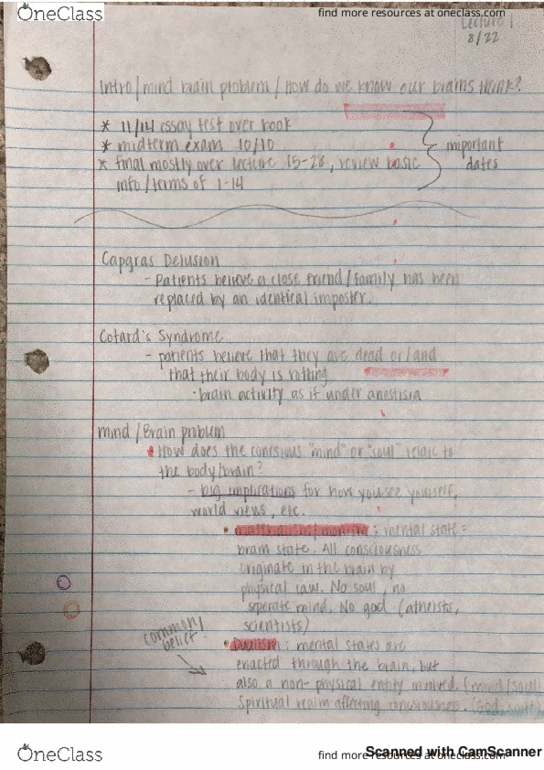 OneClass
find more resources at oneclass.com
Lecture 1
8/22
Intro/mind brain problem / How do we know our brains think?
* 11/14 essay test over book
* midterm exam 10/10
* final mostly over lecture 15-28, review basic
info/terms of 1-14
important
dates
Capgras Delusion
- Patients believe a close friend/family has been
replaced by an identical imposter.
Cotard's Syndrome
- patients believe that they are dead or/and
that their body is rotting
· brain activity as if under anestisia
mind/Brain problem
How does the concious "mind" or "soul" relate to
the body/brain?
- big implications for how you see yourself,
world views, etc.
• materialism/monism : mental state =
brain state. All consciousness
originate in the brain by
physical law. No soul, no
seperate mind. No god (atheists,
scientists)
common
belief
• Dualism : mental states are
enacted through the brain, but
also a non-physical entity involved. (mind/soul)
Spiritual realm affecting consciousness.
OneClass
find more resources at oneclass.com
Scanned with CamScanner